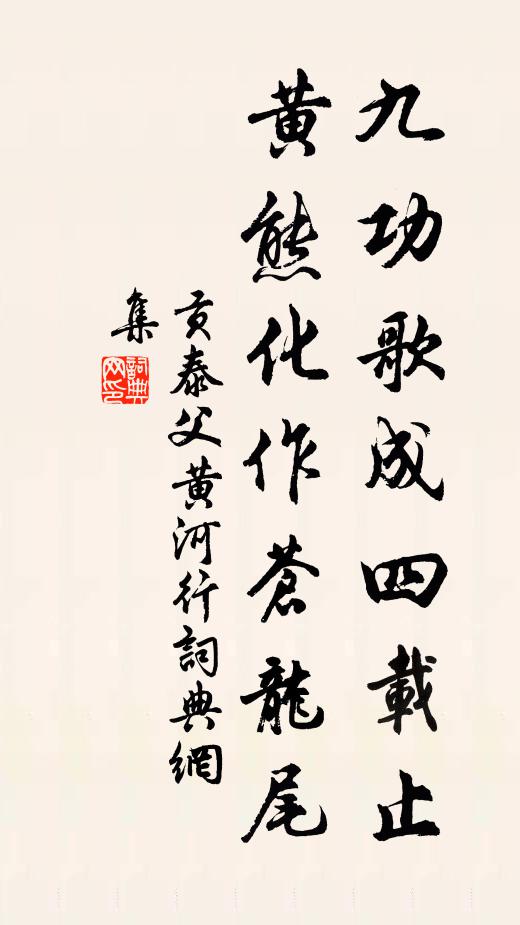 九功歌成四載止
黃熊化作蒼龍尾
貢泰父黃河行詞典網
集
詞典網印